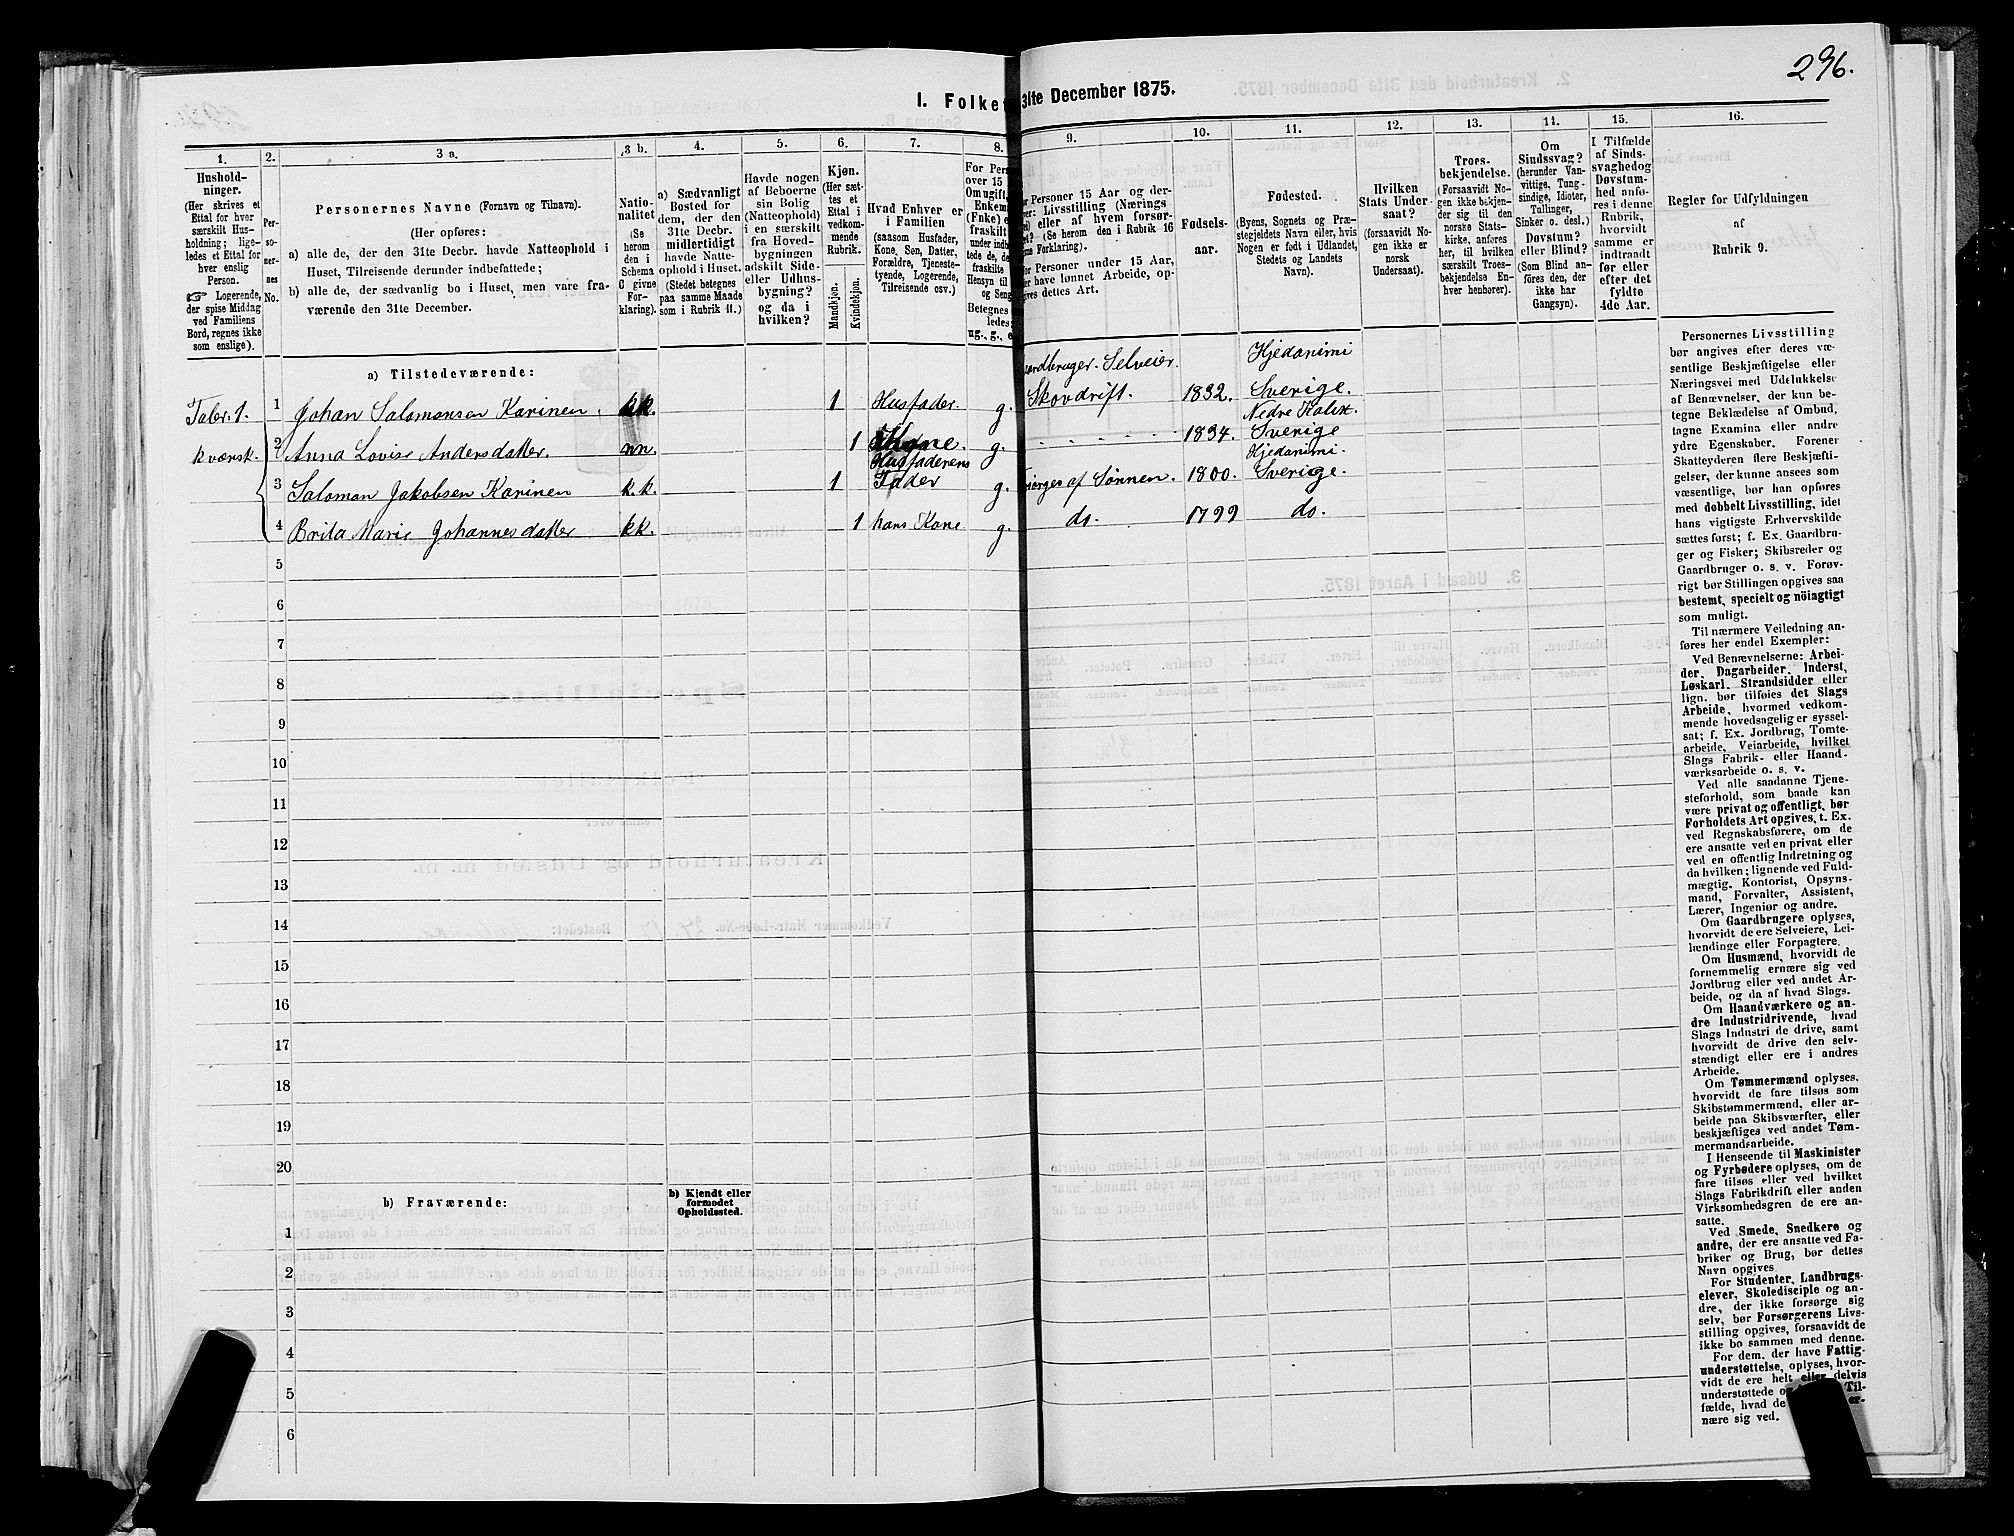 296.
I. Folket
31te December 1875.
1.
2.
3 a.
3 b.
4.
5.
6.
7.
8.
9.
10.
11.
12.
13.
14.
15.
16.
Hushold-
ninger.
(Her skrives et
Ettal for hver
særskilt Hus-
holdning; lige-
ledes et Ettal for
hver enslig
Person.
☞ Logerende,
der spise Middag
ved Familiens
Bord, regnes ikke
som enslige).
Per-
so-
ner-
nes
No.
Personernes Navne (Fornavn og Tilnavn).
(Her opføres:
a) alle de, der den 31te Decbr. havde Natteophold i
Huset, Tilreisende derunder indbefattede;
b) alle de, der sædvanlig bo i Huset, men vare fra-
værende den 31te December.
Natio-
nalitet
(Se
herom
den i
Schema
C givne
For-
klaring).
a) Sædvanligt
Bosted for
dem, der den
31te Decbr.
midlertidigt
havde Natte-
ophold i Huset.
(Stedet betegnes
paa samme Maade
som i Rubrik 11.)
Havde nogen
af Beboerne
sin Bolig
(Natteophold)
i en særskilt
fra Hoved-
bygningen
adskilt Side-
eller Udhus-
bygning?
og da i
hvilken?
Kjøn.
(Her sæt-
tes et
Ettal i
vedkom-
mende
Rubrik.
Mandkjøn.
Kvindekjøn.
Hvad Enhver er
i Familien
(saasom Husfader,
Kone, Søn, Datter,
Forældre, Tjeneste-
tyende, Logerende,
Tilreisende osv.)
For Pers
over 15
Om ugift,
Enkem
(Fnke) e
fraskilt
under indb
tede de, de
fraskilte
Hensyn til
og Seng
Betegnes
ledes:
ug., g., e
or Personer 15 Aar og der-
ver: Livsstilling (Nærings
ei) eller af hvem forsør-
get? (Se herom den i Rubrik 16
ne Forklaring).
or Personer under 15 Aar,
er have lønnet Arbeide, op-
gives dettes Art.
Fødsels-
aar.
Fødested.
(Byens, Sognets og Præ-
stegjeldets Navn eller, hvis
Nogen er født i Udlandet,
Stedets og Landets
Navn).
Hvilken
Stats Under-
saat?
(forsaavidt No-
gen ikke er
norsk
Undersaat).
Troes-
bekjendelse.
(Forsaavidt No-
gen ikke bekjen-
der sig til den
norske Stats-
kirke, anføres
her, til hvilken
særskilt Troes-
bekjendelse En-
hver henhører).
Om
Sindssvag?
(herunder Van-
vittige, Tung-
sindige, Idioter,
Tullinger,
Sinker o. desl.)
Døvstum?
eller Blind?
(Som Blind an-
føres den, der
ikke har
Gangsyn).
I Tilfælde
af Sinds-
svaghed og
Døvstum-
hed anfø-
res i denne
Rubrik,
hvorvidt
samme er
indtraadt
før eller
efter det
fyldte
4de Aar.
Regler for Udfyldningen
af
Rubrik 9.
a) Tilstedeværende:
Taler 1.
kvænsk.
1 Johan Salomonsen Karinen. kk. 1 Husfader. g.
Jordbruger. Selveier.
Skovdrift. 1832. Hjedanimi
Sverige.
2 Anna Lovise Andersdatter. nn. 1 Kone. g. 1834. Nedre Kalix.
Sverige
3 Saloman Jakobsen Karinen k.k. 1 Husfaderens
Fader g. forsørges af Sønnen. 1800. Hjedanimi.
Sverige.
4 Brita Maris Johannesdatter kk. 1 hans Kone g. do. 1799 do.
5
6
7
8
9
10
11
12
13
14
15
16
17
18
19
20
b) Fraværende:
b) Kjendt eller
formodet
Opholdssted.
1
2
3
4
5
6
Personernes Livsstilling
bør angives efter deres væ-
sentlige Beskjæftigelse eller
Næringsvei med Udelukkelse
af Benævnelser, der kun be-
tegne Beklædelse af Ombud,
tagne Examina eller andre
ydre Egenskaber. Forener
Skatteyderen flere Beskjæfti-
gelser, der kunne ansees som
væsentlige, bør han opføres
med dobbelt Livsstilling, idet
hans vigtigste Erhvervskilde
sættes først; f. Ex. Gaardbru-
ger og Fisker; Skibsreder og
Gaardbruger o. s. v. Forøv-
rigt bør Stillingen opgives saa
bestemt, specielt og nöiagtigt
som muligt.
Til nærmere Veiledning an-
føres her endel Exempler:
Ved Benævnelserne: Arbei-
der, Dagarbeider, Inderst,
Løskarl, Strandsidder eller
lign. bør tilføies det Slags
Arbeide, hvormed vedkom-
mende hovedsagelig er syssel-
sat; f. Ex. Jordbrug, Tomte-
arbeide, Veiarbeide, hvilket
Slags Fabrik- eller Haand-
værksarbeide o. s. v.
Ved alle saadanne Tjene-
steforhold, som baade kan
være privat og offentligt, bør
Forholdets Art opgives, t. Ex.
ved Regnskabsførere, om de
ere ansatte ved en privat eller
ved en offentlig Indretning og
da hvilken; lignende ved Fuld-
mægtig, Kontorist, Opsyns-
mand, Forvalter, Assistent,
Lærer, Ingeniør og andre.
Om Gaardbrugere oplyses,
hvorvidt de ere Selveiere, Lei-
lændinge eller Forpagtere.
Om Husmænd, hvorvidt de
fornemmelig ernære sig ved
Jordbrug eller ved andet Ar-
beide, og da af hvad Slags.
Om Haandværkere og an-
dre Industridrivende, hvad
Slags Industri de drive, samt
hvorvidt de drive den selv-
stændigt eller ere i andres
Arbeide.
Om Tømmermænd oplyses,
hvorvidt de fare tilsøs som
Skibstømmermænd, eller ar-
beide paa Skibsværfter, eller
beskjæftiges ved andet Tøm-
mermandsarbeide.
I Henseende til Maskinister
og Fyrbødere oplyses, om de
fare tilsøs eller ved hvilket
Slags Fabrikdrift eller anden
Virksomhedsgren de ere an-
satte.
Ved Smede, Snedkere og
andre, der ere ansatte ved Fa-
briker og Brug, bør dettes
Navn opgives.
For Studenter, Landbrugs-
elever, Skoledisciple og an-
dre, der ikke forsørge sig
selv, bør Forsørgerens Livs-
stilling opgives, forsaavidt de
ikke bo sammen med denne.
For dem, der have Fattig-
understøttelse, oplyses, hvor-
vidt de ere helt eller delvis
understøttede o Til-
fælde, hvad de er-
nære sig ved.